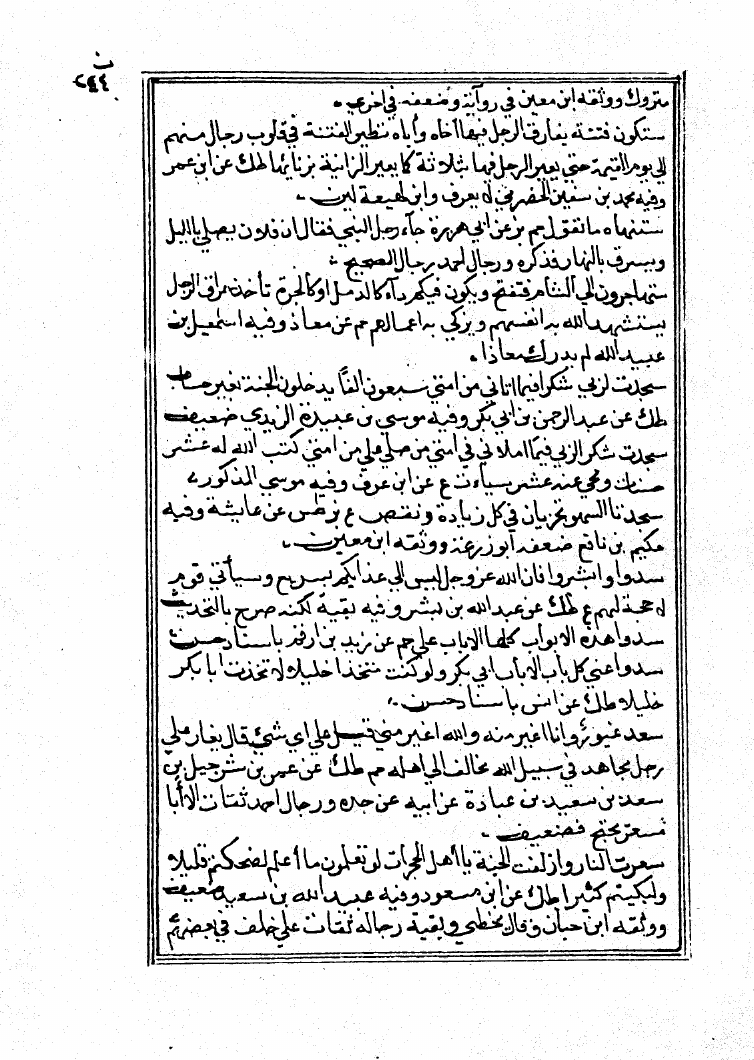 ن
٢٤٤
متروك ووثقه ابن معين في رواية وضعفه في اخري .
ستكون فتنة يفارق الرجل فيها اخاه وأباه تطير الفتنة في قلوب رجال منهم
الي يوم القيمة حتي يعير الرجل فيها بثلاثة كما يعير الزانية بزنائها طك عن ابن عمر
وفيه محمد بن سفين الحضرمي لا يعرف وابن لهيعة لين .
ستنهاه ما تقول حم بز عن ابي هريرة جآء رجل النبي فقال ان فلان يصلي بالليل
ويسرق بالنهار فذكره ورجال احمد رجال الصحيح :
ستهاجرون الي الشام فتفتح ويكون فيكم داء كالدمل او كالحرة تأخذ بمراق الرجل
يستشهد الله به انفسهم ويزكي به اعمالهم حم عن معاذ وفيه اسمعيل بن
عبيد الله لم يدرك معاذا .
سجدت لربي شكرا فيما اتاني من امتي سبعون الفا يدخلون الجنة بغير حساب
طك عن عبد الرحمن بن ابي بكر وفيه موسي بن عبيدة الزيدي ضعيف
سجدت شكر الربي فيما املاني في امتي من صلي علي من امتي كتب الله له عشر
حسنات ومحي عنه عشر سياءت ع عن ابن عوف وفيه موسي المذكور ،
سجدتا السهو تجزيان في كل زيادة ونقص ع بز طس عن عايشة وفيه
حكيم بن نافع ضعفه ابو زرعة ووثقه ابن معين .
سددوا وابشروا فان الله عز وجل ليس الي عذابكم بسريع وسيأتي قوم
لا حجة لهم ع طك عن عبد الله بن بشر وفيه بقية لكنه صرح بالتحديث
سدوا هذه الابواب كلها الا باب علي حم عن زيد بن ارقم باسناد حسن
سدوا عني كل باب الا باب ابي بكر ولو كنت متخذا خليلا لاتخذت ابا بكر
خليلا طك عن انس باسناد حسن .
سعد غيور وانا اغير منه والله اغير مني قيل علي اي شيئ قال يغار علي
رجل مجاهد في سبيل الله يخالف الي اهله حم طك عن عمر بن شرجيل بن
سعد بن سعيد بن عبادة عن ابيه عن جده ورجال احمد ثقات الا أبا
معشر نجيح فضعيف .
سعرت النار وازلفت الجنة يا أهل الحجرات لو تعلمون ما أعلم لضحكتم قليلا
ولبكيتم كثيرا طك عن ابن مسعود وفيه عبد الله بن سعيد ضعيف
ووثقه ابن حبان وقال يخطي وبقية رجاله ثقات علي خلف في بعضهم